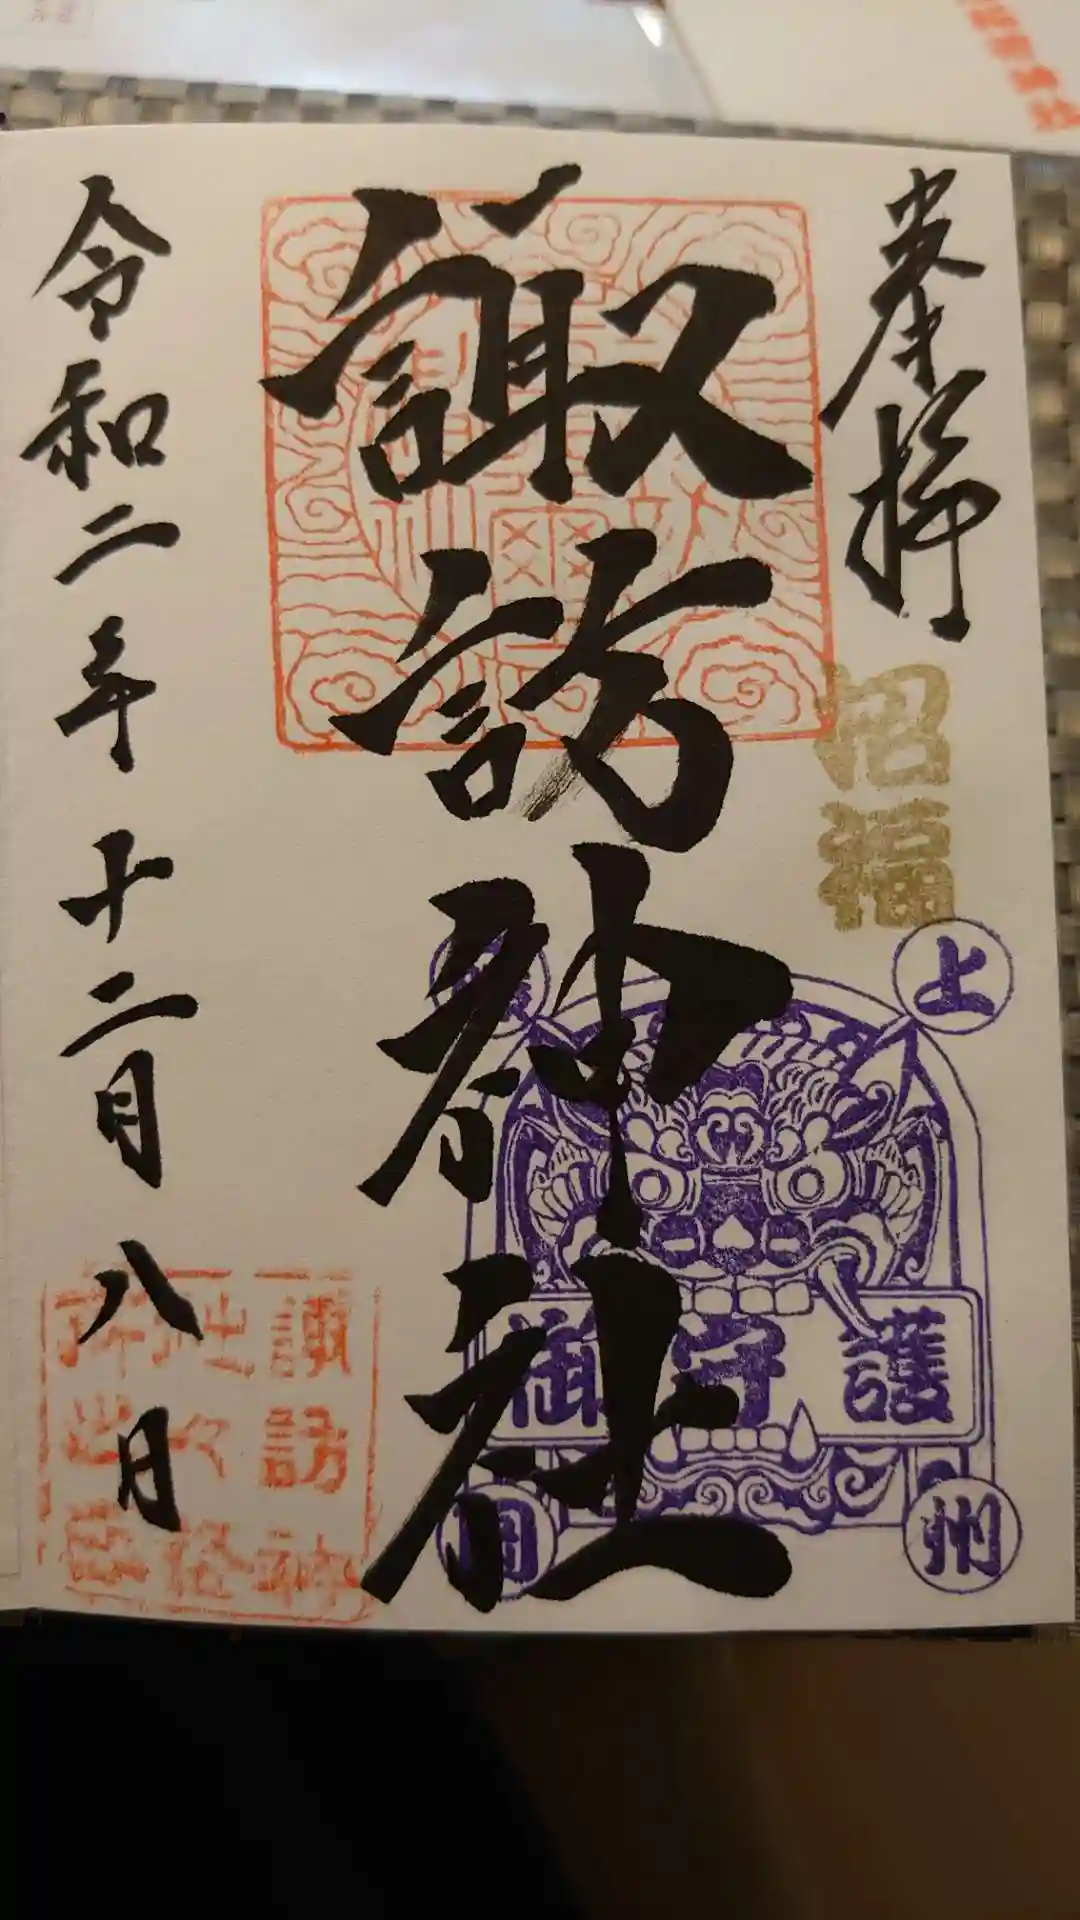 奉拝
招福
諏訪神社
上
州
護守御
令和二年十二月八日
諏訪神